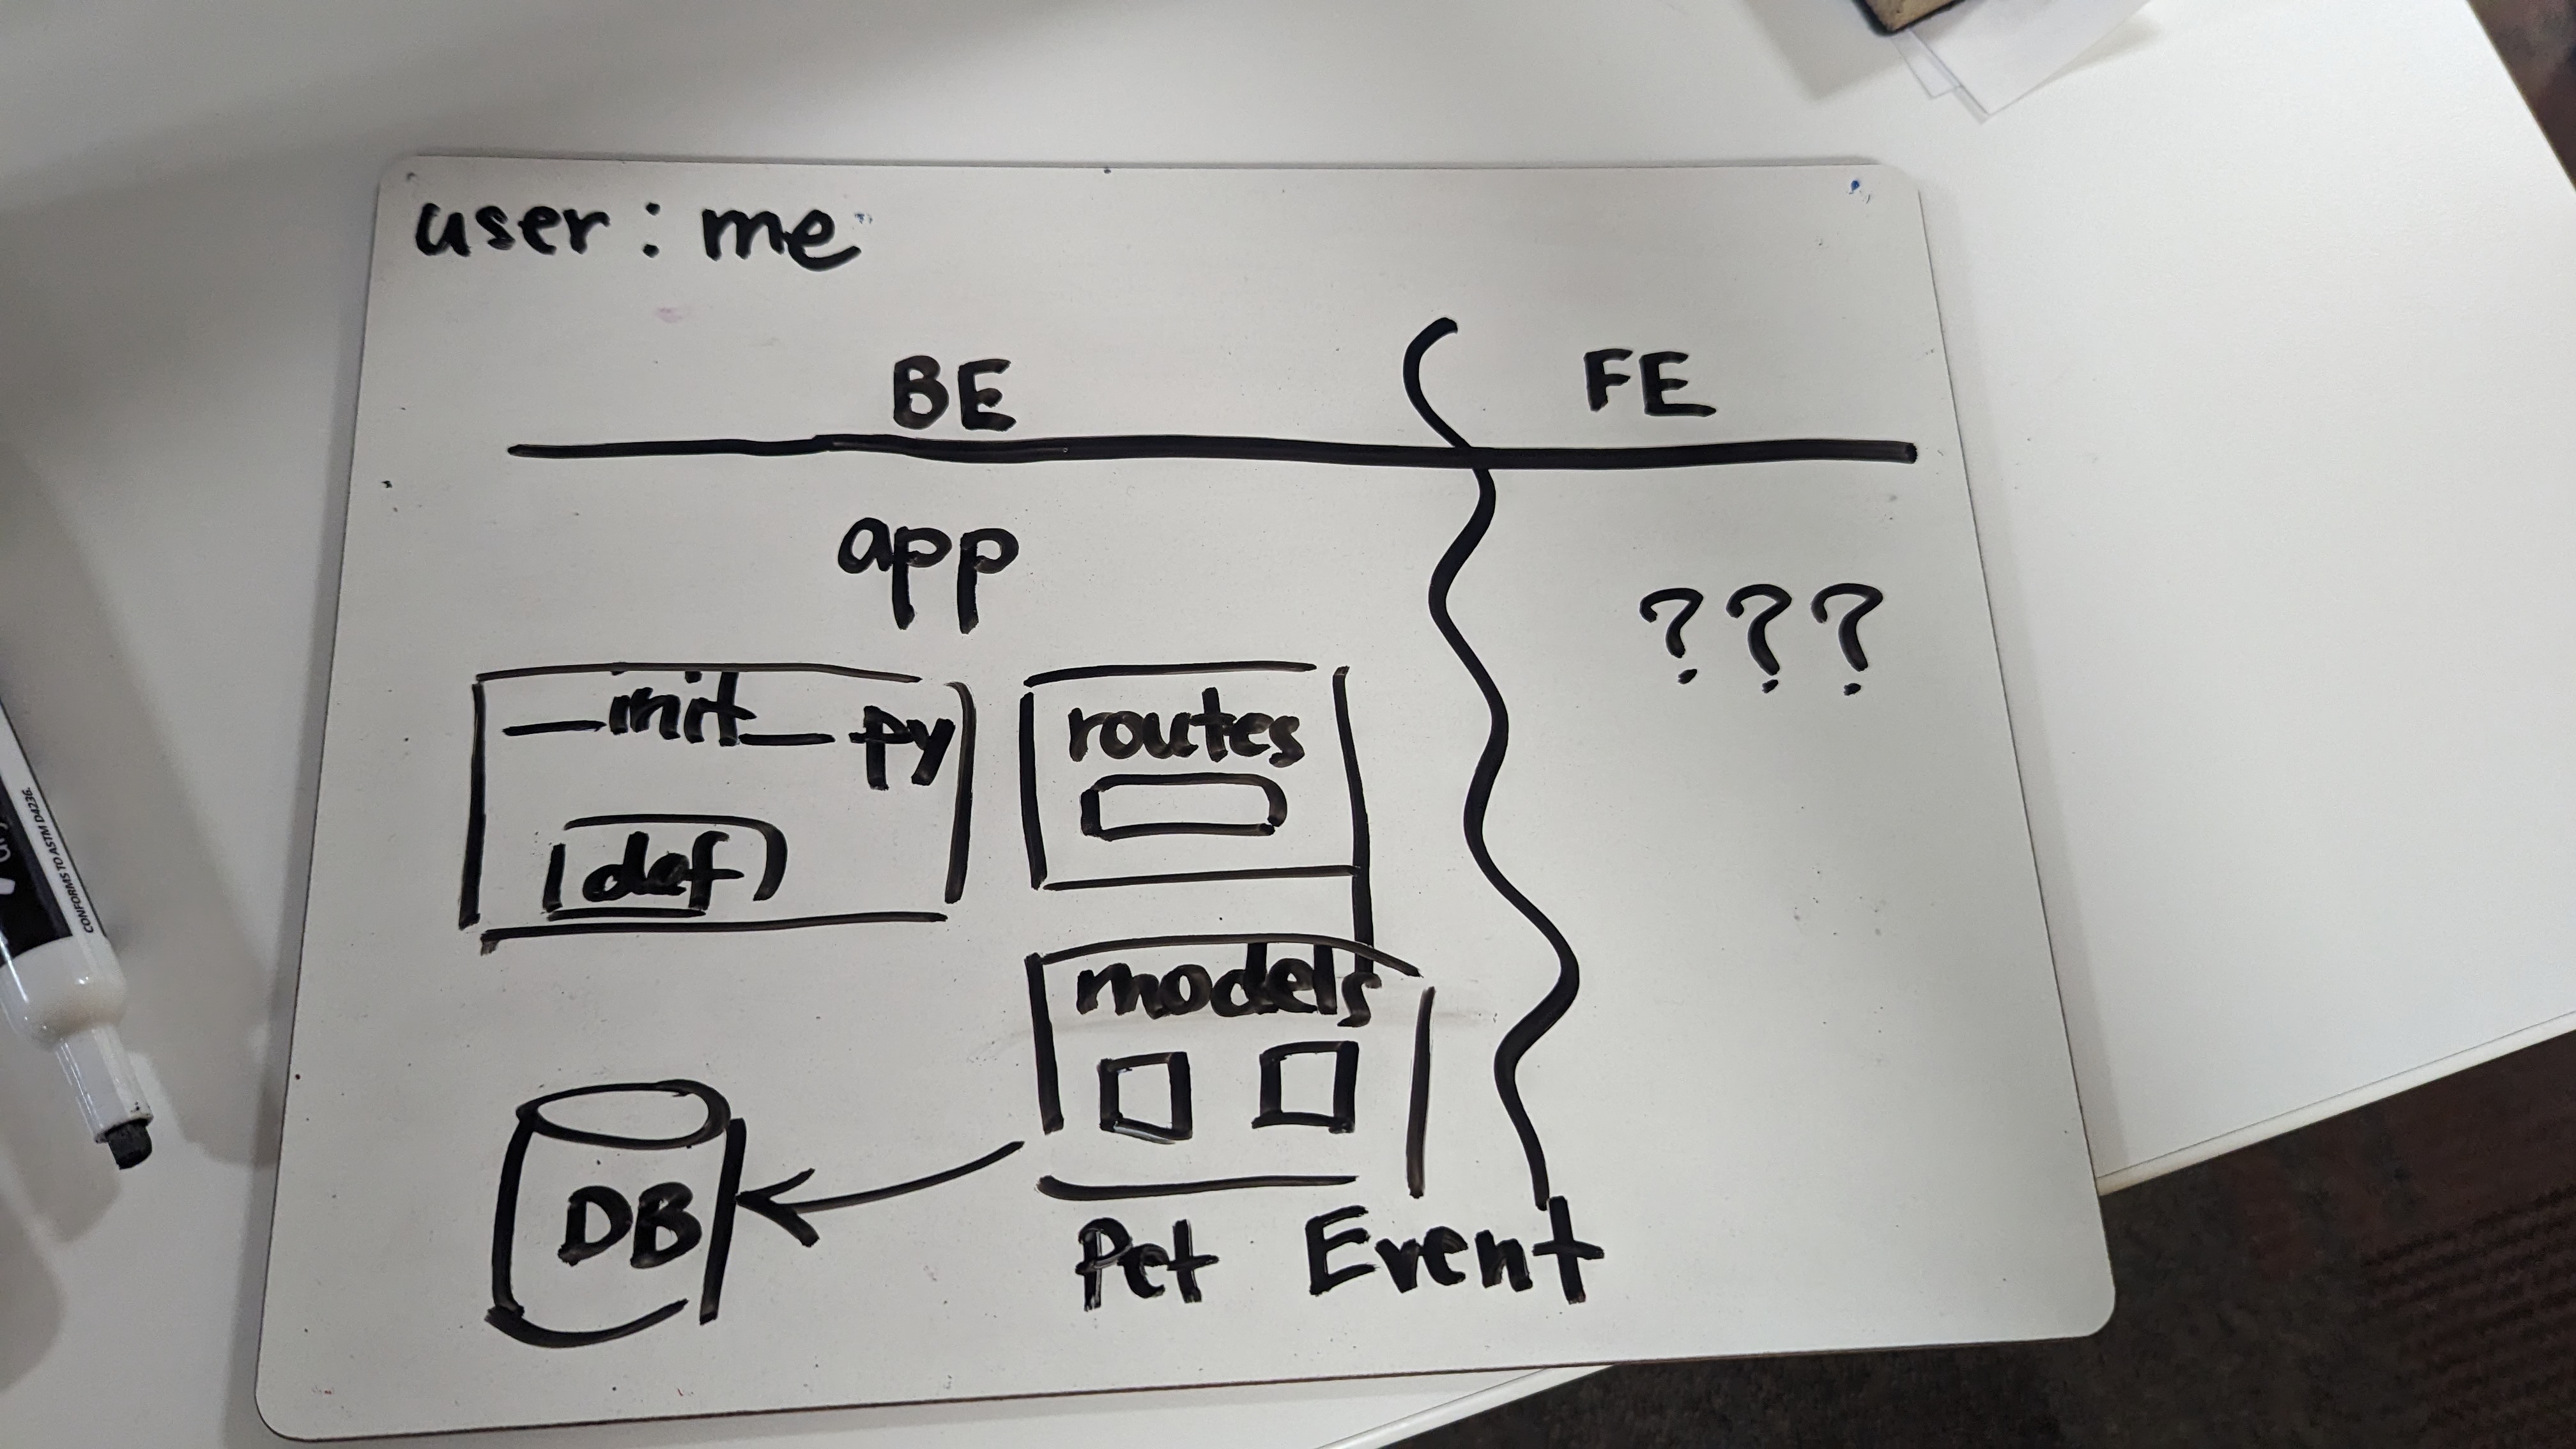 user: me
BE FE
app
???
__init__ py
routes
def
models
DB
Pet Event
CONFORMS TO ASTM D4236